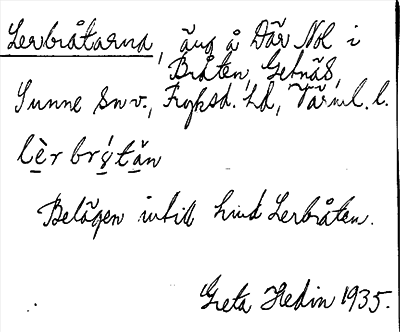 Lerbråtarna, äng å Där Nol i
Bråten, Getnäs,
Sunne Snv., Fryksd. hd, Värml. l.
lèr brṓtän
Belägen intill hmd Lerbråten.
Greta Hedin 1935.